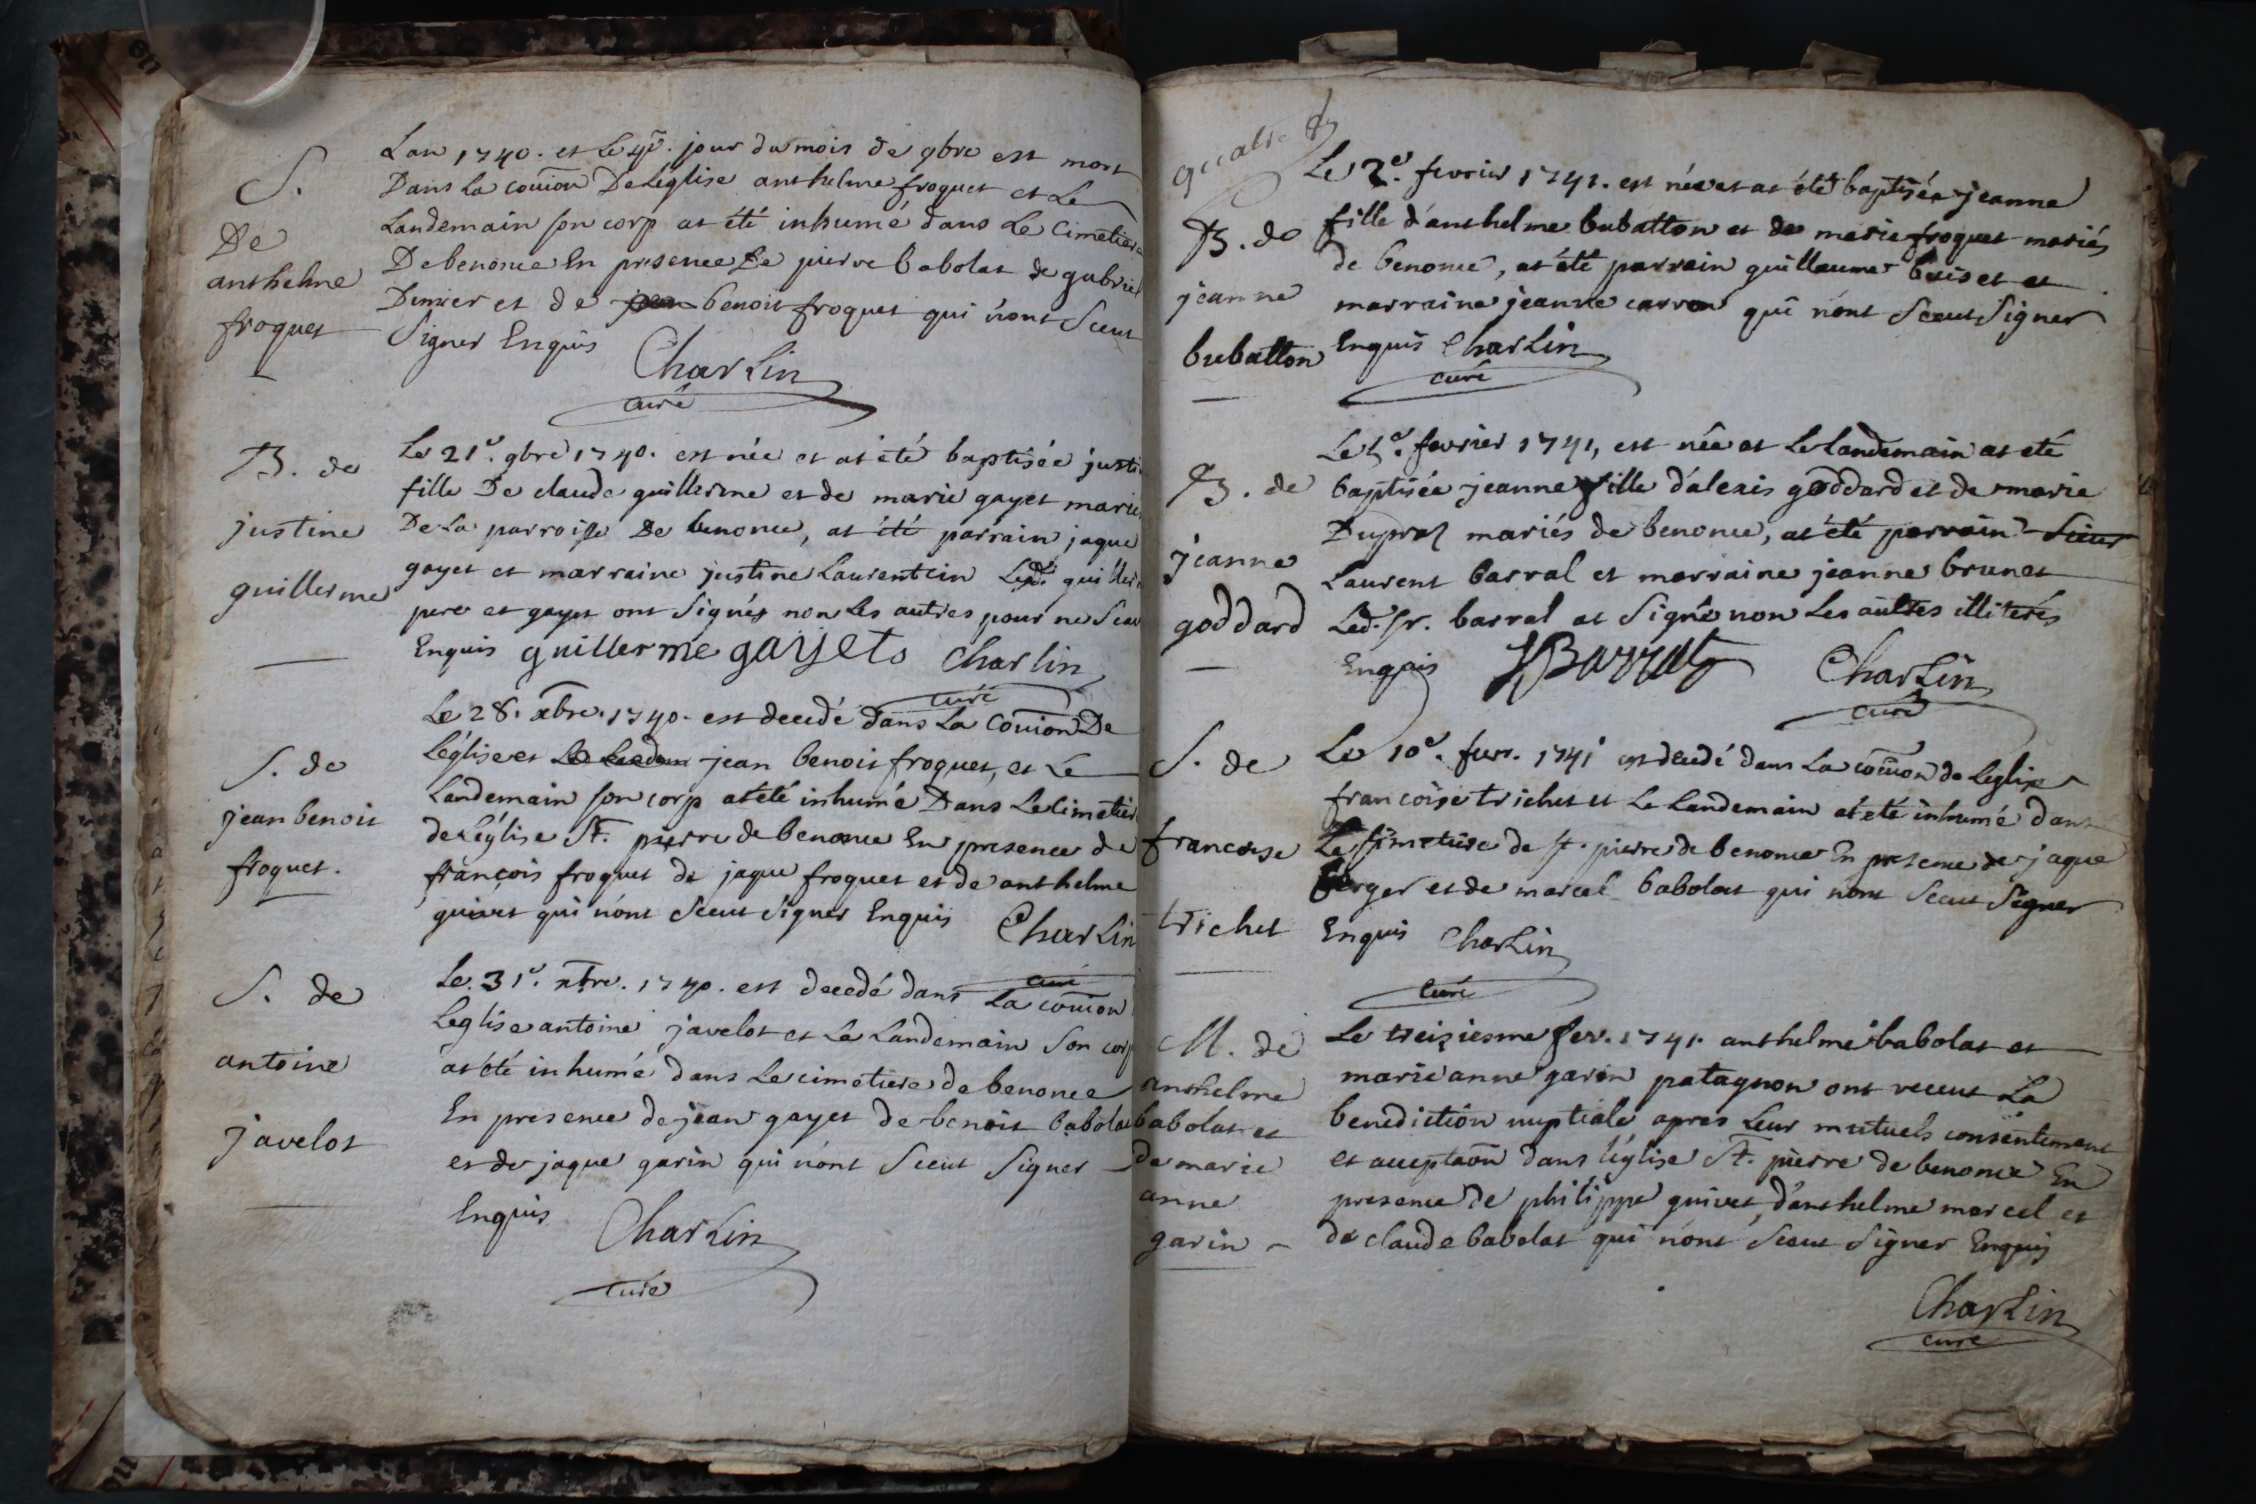 S.
De
anthelme
froquet
Lan 1740. et Le 4e. jour du mois de 9bre est mort
Dans La couïon De Léglise anthelme froquet et Le
Landemain son corp at été inhumé dans Le Cimetiere
De benonce En presence De pierre babolat de gabriel
Dimier et de benoit froquet qui n'ont Sceut
Signer Enquis
Charlin
curé
B. de
justine
guillerme
Le 21e. 9bre 1740. est née et at été baptisée justi
fille De claude guillerme et de marie gayet marie
De La parroisse De benonce, at été parrain jaque
gayet et marraine justine Laurentcin Led. guiller
pere et gayet ont Signés non Les autres pour ne Scav
Enquis guillerme gayet Charlin
curé
S. de
jean benoit
froquet.
Le 28. xbre. 1740. est decedé dans La couïon De
Léglise et jean benoit froquet, et Le
Landemain son corp at été inhumé Dans Le Cimetier
de Léglise St. pierre de benonce En presence de
françois froquet de jaque froquet et de anthelme
quivet qui n'ont Sceut Signer Enquis Charlin
curé
S. de
antoine
javelot
Le 31e. xbre. 1740. est decedé dans La couïon
Leglise antoine javelot et Le Landemain Son corp
at été inhumé dans Le cimetiere de benonce
En presence de jean gayet de benoit babolat
et de jaque garin qui n'ont Sceut Signer
Enquis
Charlin
curé
quatre
B. de
jeanne
bubatton
Le 2e. fevrier 1741. est née et at été baptisée jeanne
fille d'anthelme bubatton et de marie froquet mariés
de benonce, at été parrain guillaume buiset et
marraine jeanne carron qui n'ont Sceut Signer
Enquis Charlin
curé
B. de
jeanne
goddard
fevrier 1741, est née et Le Landemain at eté
baptisée jeanne fille d'alexis goddard et de marie
Dupraz mariés de benonce, at été parrain Sieur
Laurent barral et marraine jeanne brunet
Led. Sr. barral at Signé non Les aultres illiterés
Enquis Barral Charlin
curé
S. de
francoise
trichet
Le 10e. fevr. 1741 est decedé dans La couïon de Leglise
francoise trichet et Le Landemain at eté inhumé dans
Le Cimetiere de St. pierre de benonce En presence de jaque
berger et de marcel babolat qui n'ont Sceut Signer
Enquis Charlin
curé
M. de
anthelme
babolat et
de marie
anne
garin
Le treiziesme fev. 1741. anthelme babolat et
marie anne garin patagnon ont receut La
benediction nuptiale apres Leur mutuels consentement
et acceptaõn dans L'église St. pierre de benonce En
presence de philippe quivet, d'anthelme marcel et
de claude babolat qui n'ont Sceut Signer Enquis
Charlin
curé